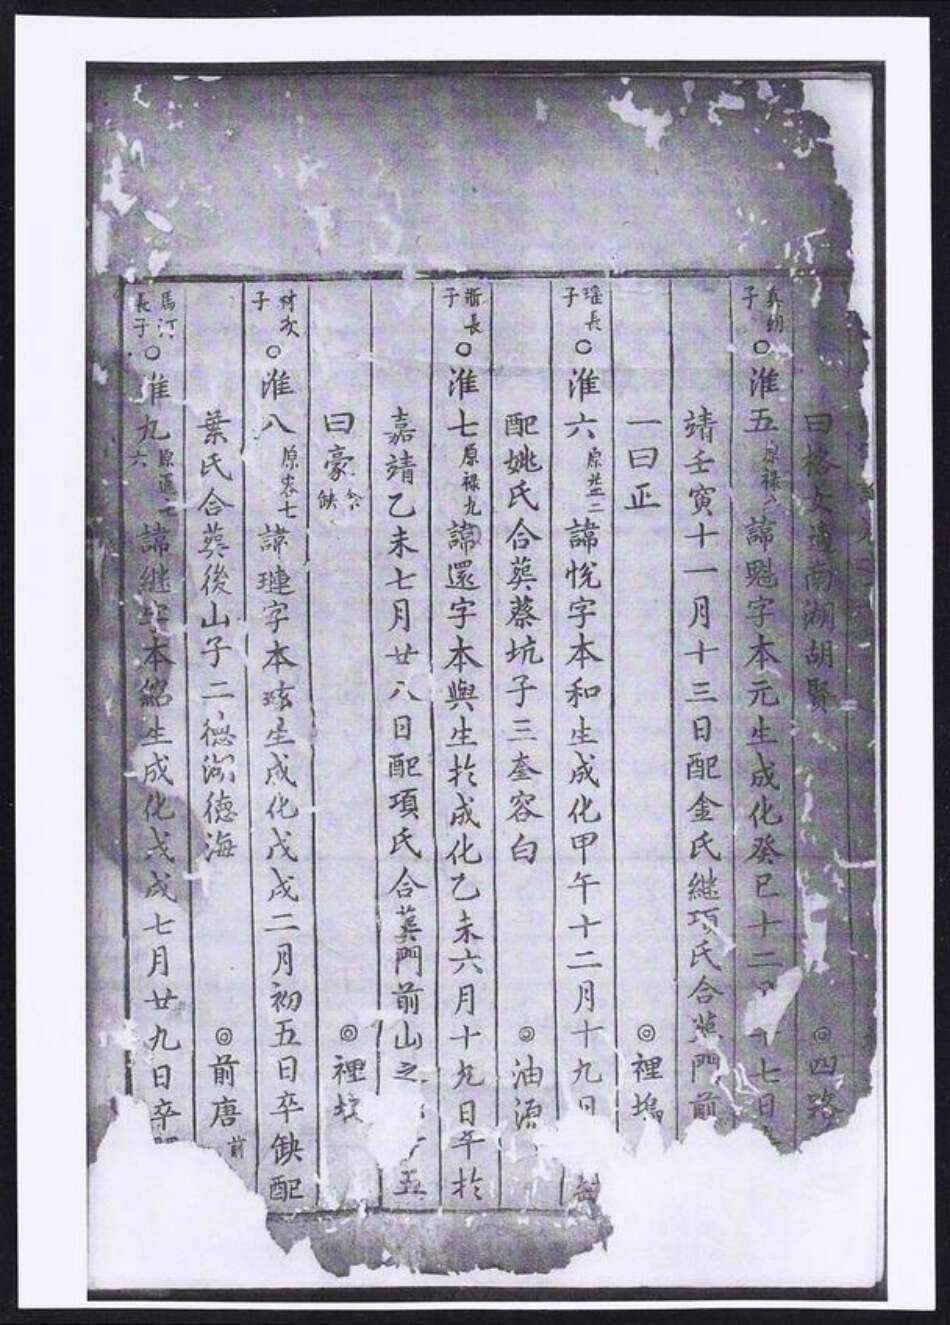 曰格女適南湖胡賢 ◎四路
子 ○淮五 原祿八 諱魁字本元生成化癸巳十二 十七日
靖壬寅十一月十三日配金氏繼項氏合葬門前
一曰正 ◎裡塢
瑤長子 ○淮六 諱悅字本和生成化甲午十二月十九日
配姚氏合葬蔡坑子三奎容白 ◎油
長子 ○淮七 原祿九 諱還字本與生於成化乙未六月十九日卒於
嘉靖乙未七月廿八日配項氏合葬門前山之 五
曰豪 缺 ◎裡
材次子 ○淮八 原 七 諱璉字本 生成化戊戌二月初五日卒缺配
葉氏合葬後山子二德淵德海 ◎前唐 前
馬汀長子 ○淮九 六 諱繼字本紹生成化戊戌七月廿九日卒